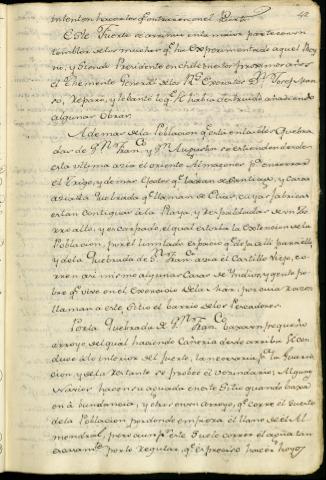 42
intenten hacerlos q.e entraren en el Puerto.
Este Fuerte se arruinó en la maior parte con un
temblor de los muchos q.e ha experimentado aquel Rey-
no, y siendo Presidente en Chile en los proximos años
el Theniente General de los R.s Exercitos D.n Josef Man-
so, reparo, y lebantó lo q.e se habia destruido añadiendo
algunas Obras.
Ademas de la Poblacion q.e está en las dos Quebra-
das de S.n Fran.co y S.n Augustin se estienden desde
esta ultima azia el oriente Almazenes p.a encerrar
el Trigo, y demas efectos q.e bajan de Santiago, y Casas
azia la Quebrada q.e llaman de Elias, cuyas fabricas
estan contiguas à la Playa, y respaldadas de un Zer-
rro alto, y escarpado, el qual estorba la extension de la
Poblacion, por el limitado espacio q.e deja alli para ella,
y de la Quebrada de S.n Fran.co azia el Castillo Viejo, co-
rren asi mismo algunas Casas de Yndios, y gente po-
bre q.e vive en el Exercicio de la Mar, por cuia razon
llaman a este sitio el barrio de los Pescadores.
Por la Quebrada de S.n Fran.co baxa un pequeño
arroyo del qual haciendo Cañeria desde arriba se con-
duce à lo interior del fuerte, la necesaria p.a la Guarni-
cion, y de la restante se probee el vezindario; Algunos
Navios hacen su aguada en este sitio quando baxa
en abundancia, y otros en un arroyo, q.e corre al Puerto
de la Poblacion por donde empieza el llano de el Al-
mendral, pero aun p.r este suele correr el agua tan
escasam.te por lo regular, q.e es preciso hacer hoyos